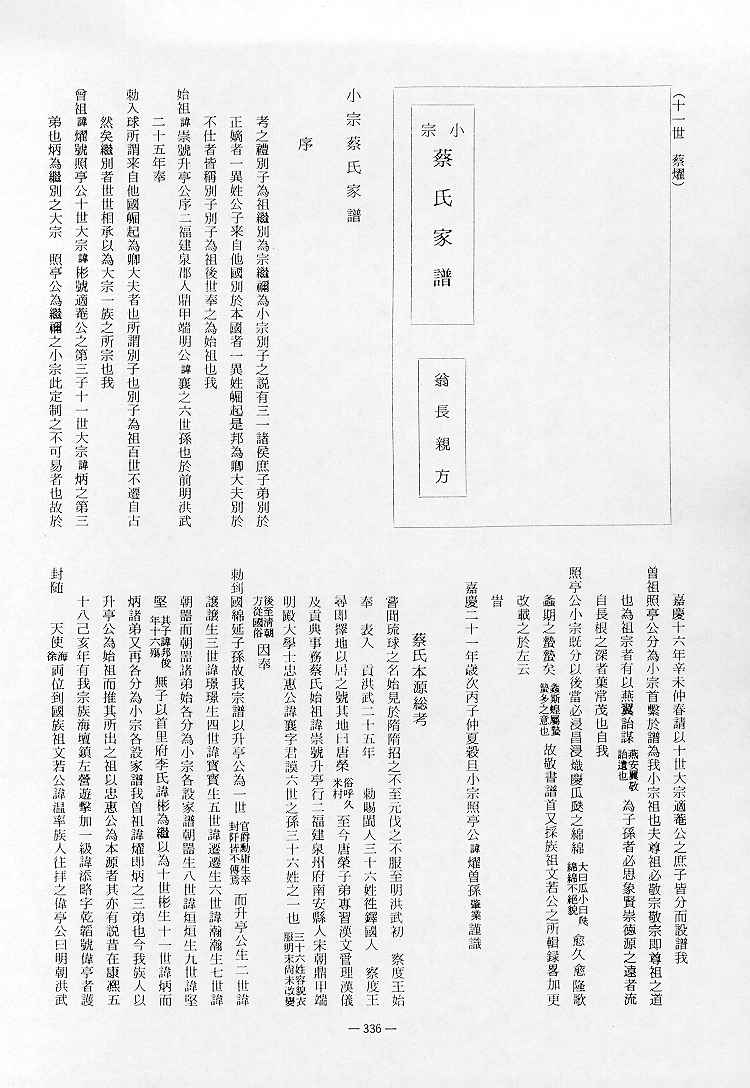 (十一世 蔡燿)
小宗
蔡氏家譜
翁長親方
小宗蔡氏家譜
序
考之禮別子為祖繼別為宗繼禰為小宗別子之説有三一諸侯庶子弟別於
正嫡者一異姓公子来自他國別於本國者一異姓崛起是邦為卿大夫別於
不仕者皆稱別子別子為祖後世奉之為始祖也我
始祖諱崇號升亭公序二福建泉郡人鼎甲端明公諱襄之六世孫也於前明洪武
二十五年奉
勅入球所謂来自他國崛起為卿大夫者也所謂別子也別子為祖百世不遷自古
然矣繼別者世世相承以為大宗一族之所宗也我
曾祖諱燿號照亭公十世大宗諱彬號適菴公之第三子十一世大宗諱炳之第三
弟也炳為繼別之大宗 照亭公為繼禰之小宗此定制之不可易者也故於
嘉慶十六年辛未仲春請以十世大宗適菴公之庶子皆分而設譜我
曽祖照亭公分為小宗首繫於譜為我小宗祖也夫尊祖必敬宗敬宗即尊祖之道
也為祖宗者有以燕翼詒謀 燕安翼敬詒遺也 為子孫者必思象賢崇徳源之遠者流
自長根之深者葉常茂也自我
照亭公小宗既分以後當必浸昌浸熾慶瓜瓞之綿綿 大曰瓜小曰瓞綿綿不絶貌 愈久愈隆歌
螽斯之蟄蟄矣 螽斯蝗屬蟄蟄多之意也 故敬書譜首又採族祖文若公之所輯録畧加更
改載之於左云
旹
嘉慶二十一年歳次丙子仲夏穀旦小宗照亭公諱燿曽孫肇業謹識
蔡氏本源総考
嘗聞琉球之名始見於隋隋招之不至元伐之不服至明洪武初 察度王始
奉 表入 貢洪武二十五年 勅賜閩人三十六姓徃鐸國人 察度王
尋即擇地以居之號其地曰唐榮 俗呼久米村 至今唐榮子弟専習漢文嘗理漢儀
及貢典事務蔡氏始祖諱崇號升亭行二福建泉州府南安縣人宋朝鼎甲端
明殿大學士忠惠公諱襄字君謨六世之孫三十六姓之一也 三十六姓容貌衣服明末尚未改變
後至清朝方從國俗 因奉
勅到國綿延子孫故我宗譜以升亭公為一世 官爵勳庸生卒封阡皆不傳焉 而升亭公生二世諱
讓讓生三世諱璟璟生四世諱賓賓生五世諱遷遷生六世諱瀚瀚生七世諱
朝噐而朝噐諸弟始各分為小宗各設家譜朝噐生八世諱烜烜生九世諱堅
堅 其子諱邦俊年十六殤 無子以首里府李氏諱彬為繼以為十世彬生十一世諱炳而
炳諸弟又再各分為小宗各設家譜我曽祖諱燿即炳之三弟也今我族人以
升亭公為始祖而推其所出之祖以忠惠公為本源者其亦有説昔在康熙五
十八己亥年有我宗族海壇鎮左營遊擊加一級諱添略字乾韜號偉亭者護
封随 天使 海徐 両位到國族祖文若公諱温率族人往拜之偉亭公曰明朝洪武
— 336 —